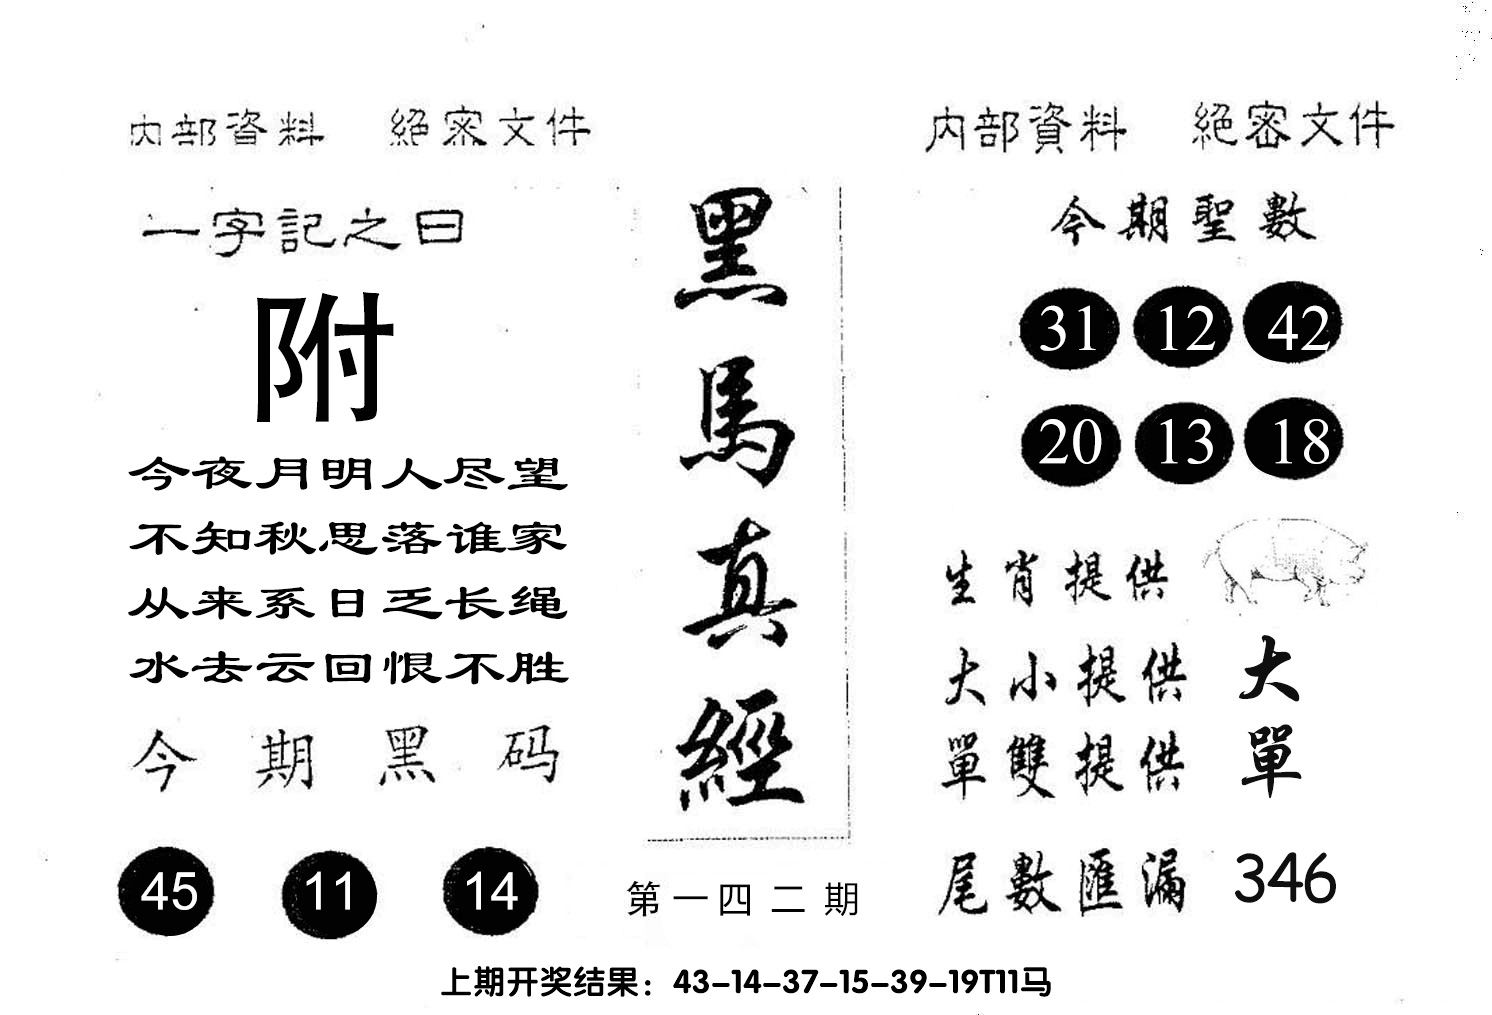 內部資料 絕密文件
一字記之曰
附
今夜月明人尽望
不知秋思落谁家
从来系日乏长绳
水去云回恨不胜
今期黑码
45 11 14
黑馬真經
第一四二期
內部資料 絕密文件
今期聖數
31 12 42
20 13 18
生肖提供
大小提供 大
單雙提供 單
尾數匯漏 346
上期开奖结果：43-14-37-15-39-19T11马